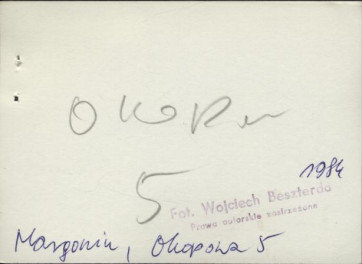 Okopowa
5
1984
Fot. Wojciech Beszterda
Prawa autorskie zastrzeżone
Margonin, Okopowa 5